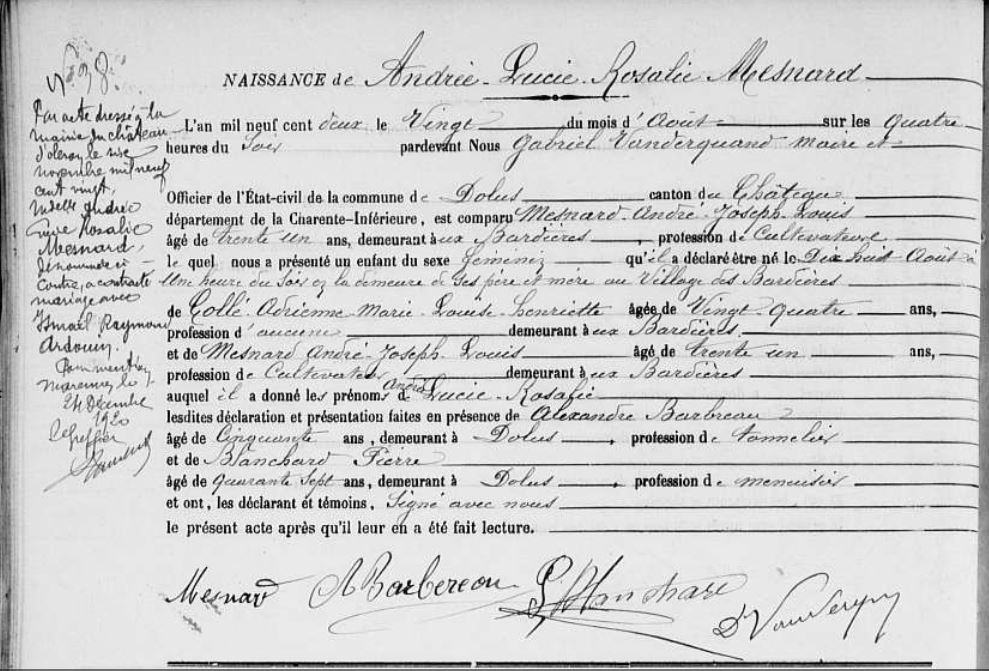 N° 38
Par acte dressé à la
mairie du château
d'oleron le
novembre mil neuf
cent vingt,
Mesnard,
dénommée ci-
contre, a contracté
mariage avec
Ismaël Raymond
Ardouin.
Pour mention
Marennes le
24 Décembre
1920
Le greffier
NAISSANCE de Andrée Lucie Rosalie Mesnard
L'an mil neuf cent deux le Vingt du mois d'Août sur les quatre
heures du Soir pardevant Nous Gabriel Vanderquand Maire et
Officier de l'État-civil de la commune de Dolus canton du Château
département de la Charente-Inférieure, est comparu Mesnard André Joseph Louis
âgé de trente un ans, demeurant aux Bardières, profession de Cultivateur
le quel nous a présenté un enfant du sexe féminin qu'il a déclaré être né le Dix huit Août à
Une heure du Soir en la demeure de Ses père et mère au Village des Bardières
de Collé Adrienne Marie Louise Henriette âgée de Vingt quatre ans,
profession d'aucune demeurant aux Bardières
et de Mesnard André Joseph Louis âgé de trente un ans,
profession de Cultivateur demeurant aux Bardières
auquel il a donné les prénoms d'André Lucie Rosalie
lesdites déclaration et présentation faites en présence de Alexandre Barbreau
âgé de Cinquante ans, demeurant à Dolus, profession de tonnelier
et de Blanchard Pierre
âgé de quarante Sept ans, demeurant à Dolus, profession de menuisier
et ont, les déclarant et témoins, Signé avec nous
le présent acte après qu'il leur en a été fait lecture.
Mesnard A Barbereau P. Blanchard